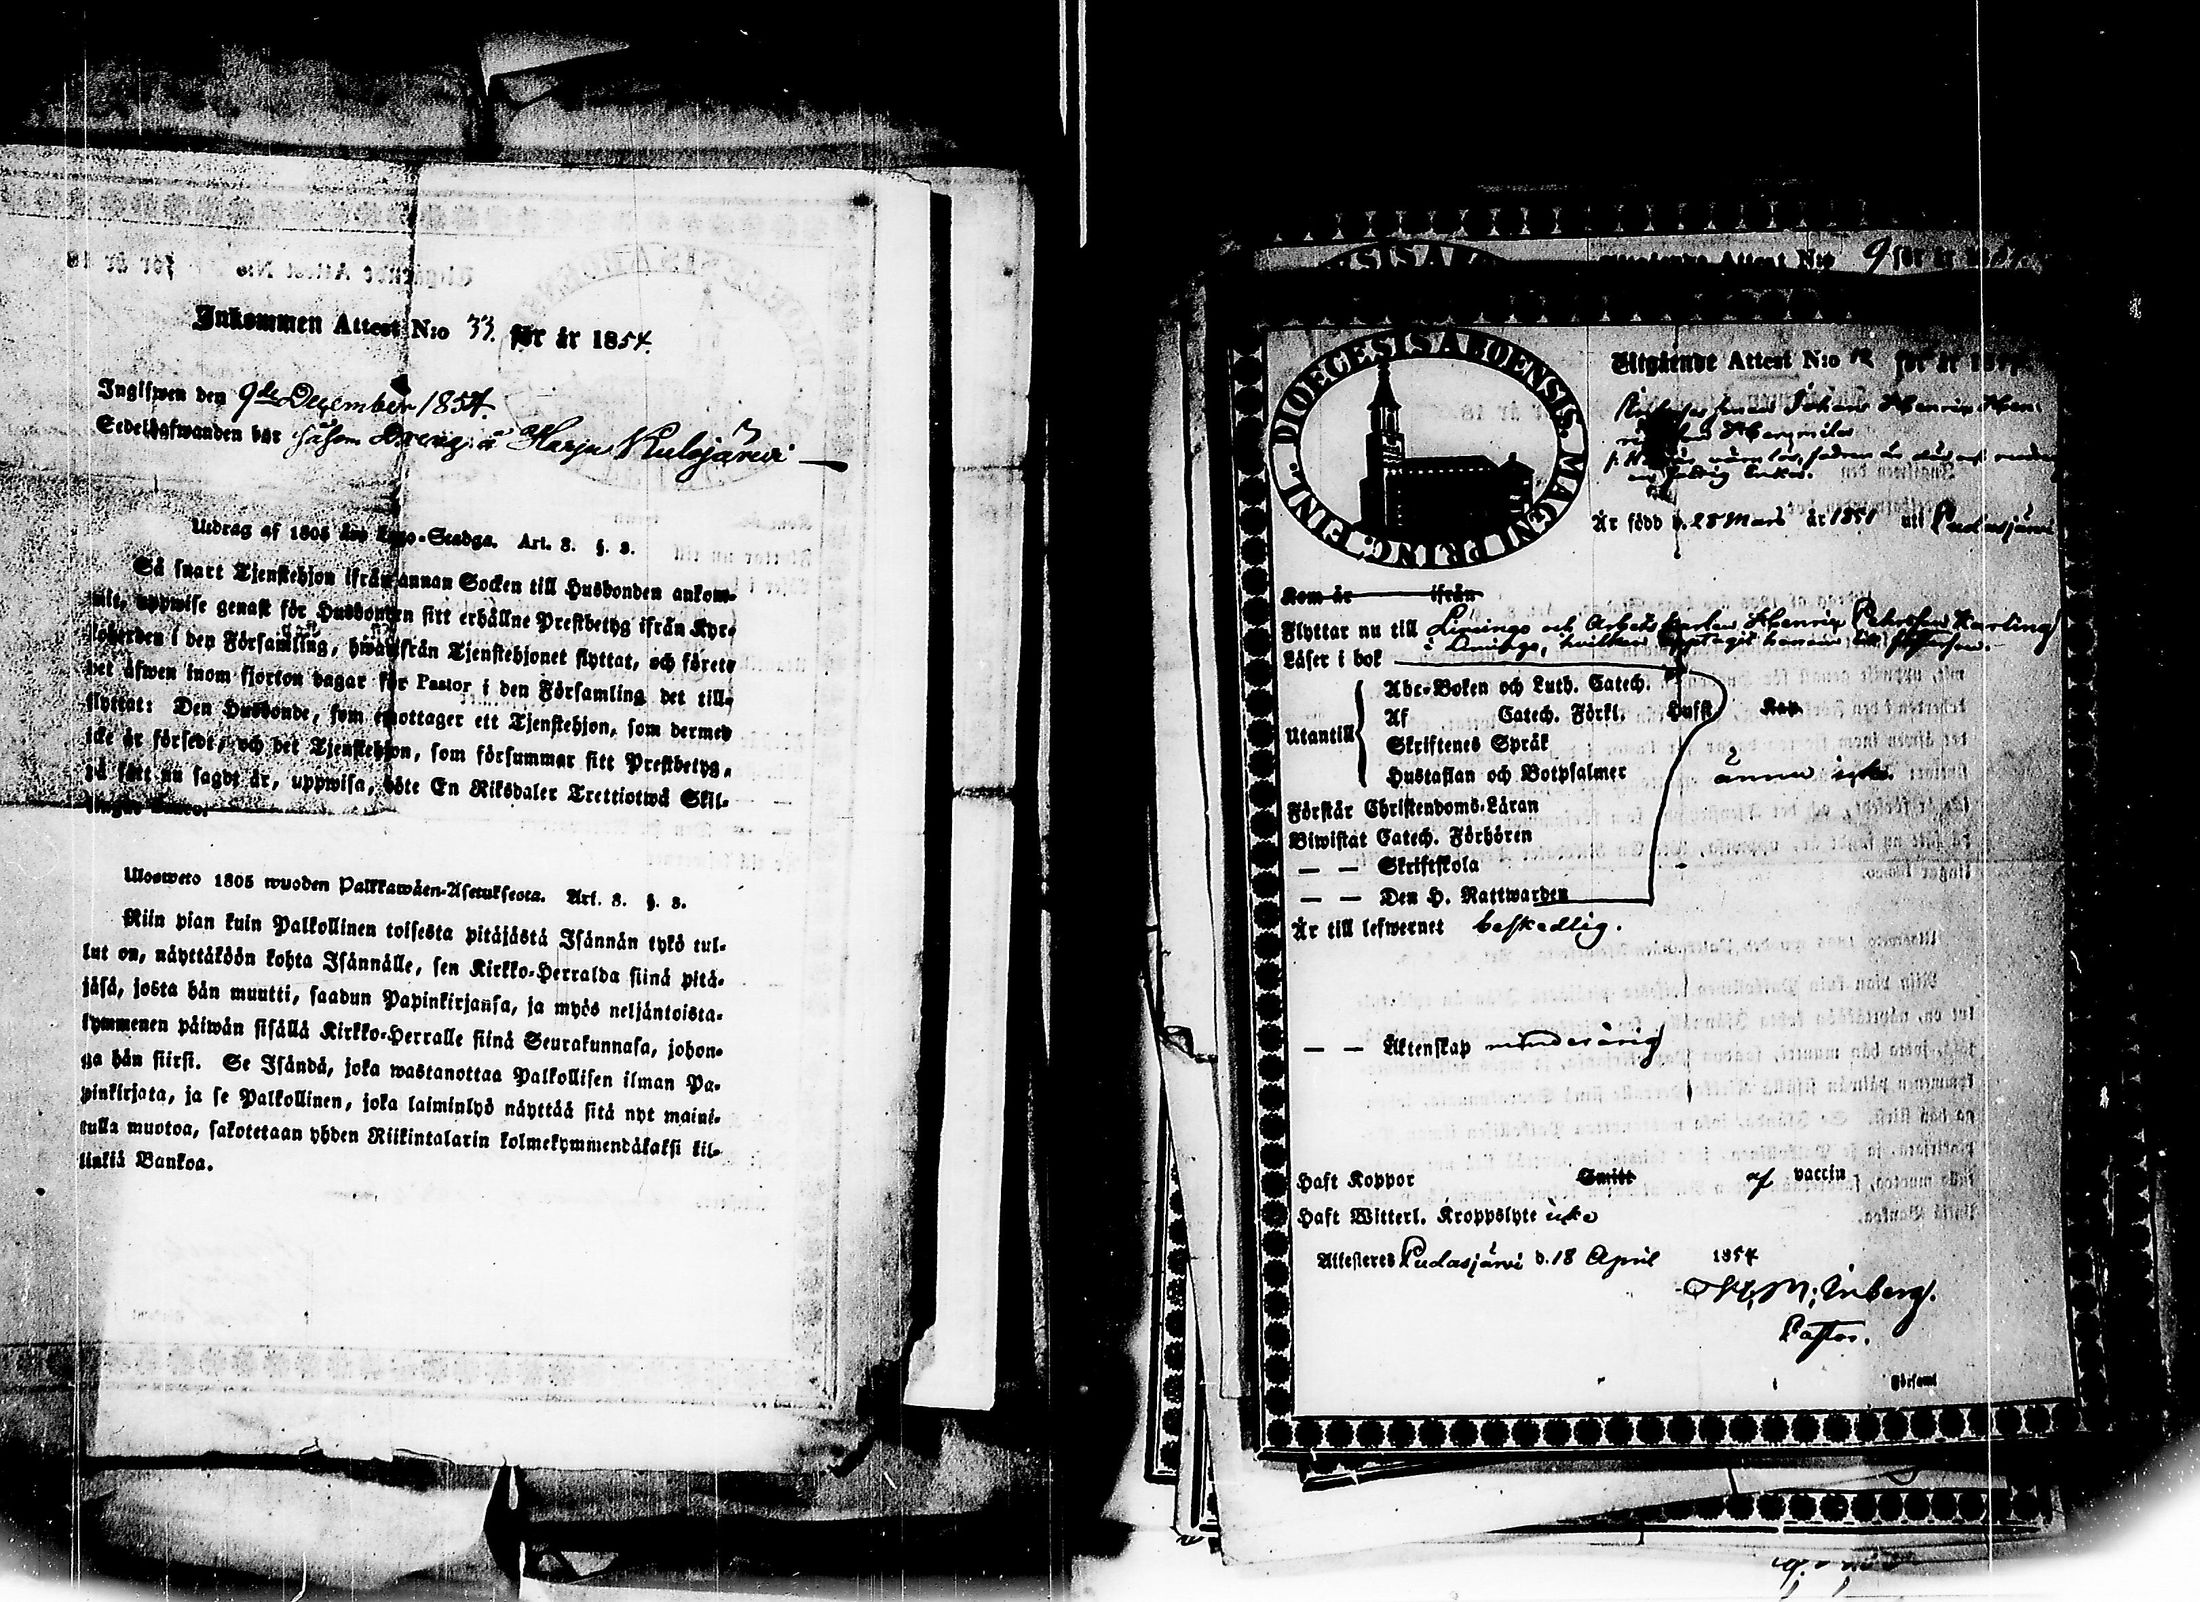 Inkommen Attest N:o 33. för år 1854.
Inglfwen den 9de December 1854.
Sedelhafwanden bor såsom Dräng å Harju Kulojärwi
Utdrag af 1805 års Lego-Stadga. Art. 8. §. 3.
Så snart Tjenstehjon ifrån annan Socken till Husbonden ankom-
mit, uppwise genast för Husbonden sitt erhållne Prestbetyg ifrån Kyr-
koherden i den Församling, hwarifrån Tjenstehjonet flyttat, och förete
det äfwen inom fjorton dagar för Pastor i den Församling det till-
flyttat: Den Husbonde, som emottager ett Tjenstehjon, som dermed
icke är försedt, och det Tjenstehjon, som försummar sitt Prestbetyg,
på sätt nu sagdt är, uppwisa, böte En Riksdaler Trettiotwå Skil-
lingar Banco.
Ulosweto 1805 wuoden Palkkawäen-Asetuksesta. Art. 8. §. 3.
Niin pian kuin Palkollinen toisesta pitäjästä Isännän tykö tul-
lut on, näyttäköön kohta Isännälle, sen Kirkko-Herralda siinä pitä-
jäsä, josta hän muutti, saadun Papinkirjansa, ja myös neljäntoista-
kymmenen päiwän sisällä Kirkko-Herralle siinä Seurakunnasa, johon-
ga hän siirsi. Se Isändä, joka wastanottaa Palkollisen ilman Pa-
pinkirjata, ja se Palkollinen, joka laiminlyö näyttää sitä nyt maini-
tulla muotoa, sakotetaan yhden Riikintalarin kolmekymmendäkaksi kil-
linkiä Bankoa.
Attest N:o 9 för år
DIOECESIS ABOENSIS. MAGNI PRINC. FINL.
Utgående Attest N:o 12 för år 1854
Johan Henrix Hen
Är född d. 25 Mars år 1851 uti Pudasjärvi
Kom år ifrån
Flyttar nu till Liminge och Arbets karlen Henrix Pehrsson Karling
i Liminge, hvilken upptagit honom till fosterson.
Läser i bok
Utantill
Abc-Boken och Luth. Catech.
Af Catech. Förkl. Hufst. Kap.
Skriftenes Språk
Hustaflan och Botpsalmer ännu icke.
Förstår Christendoms-Läran
Biwistat Catech. Förhören
— — Skriftskola
— — Den H. Nattwarden
Är till lefwernet beskedlig.
— — Äktenskap minderårig
Haft Koppor Smitt af vaccin
Haft Witterl. Kroppslyte icke
Attesteres Pudasjärvi d. 18 April 1854
Pastor.
Församl